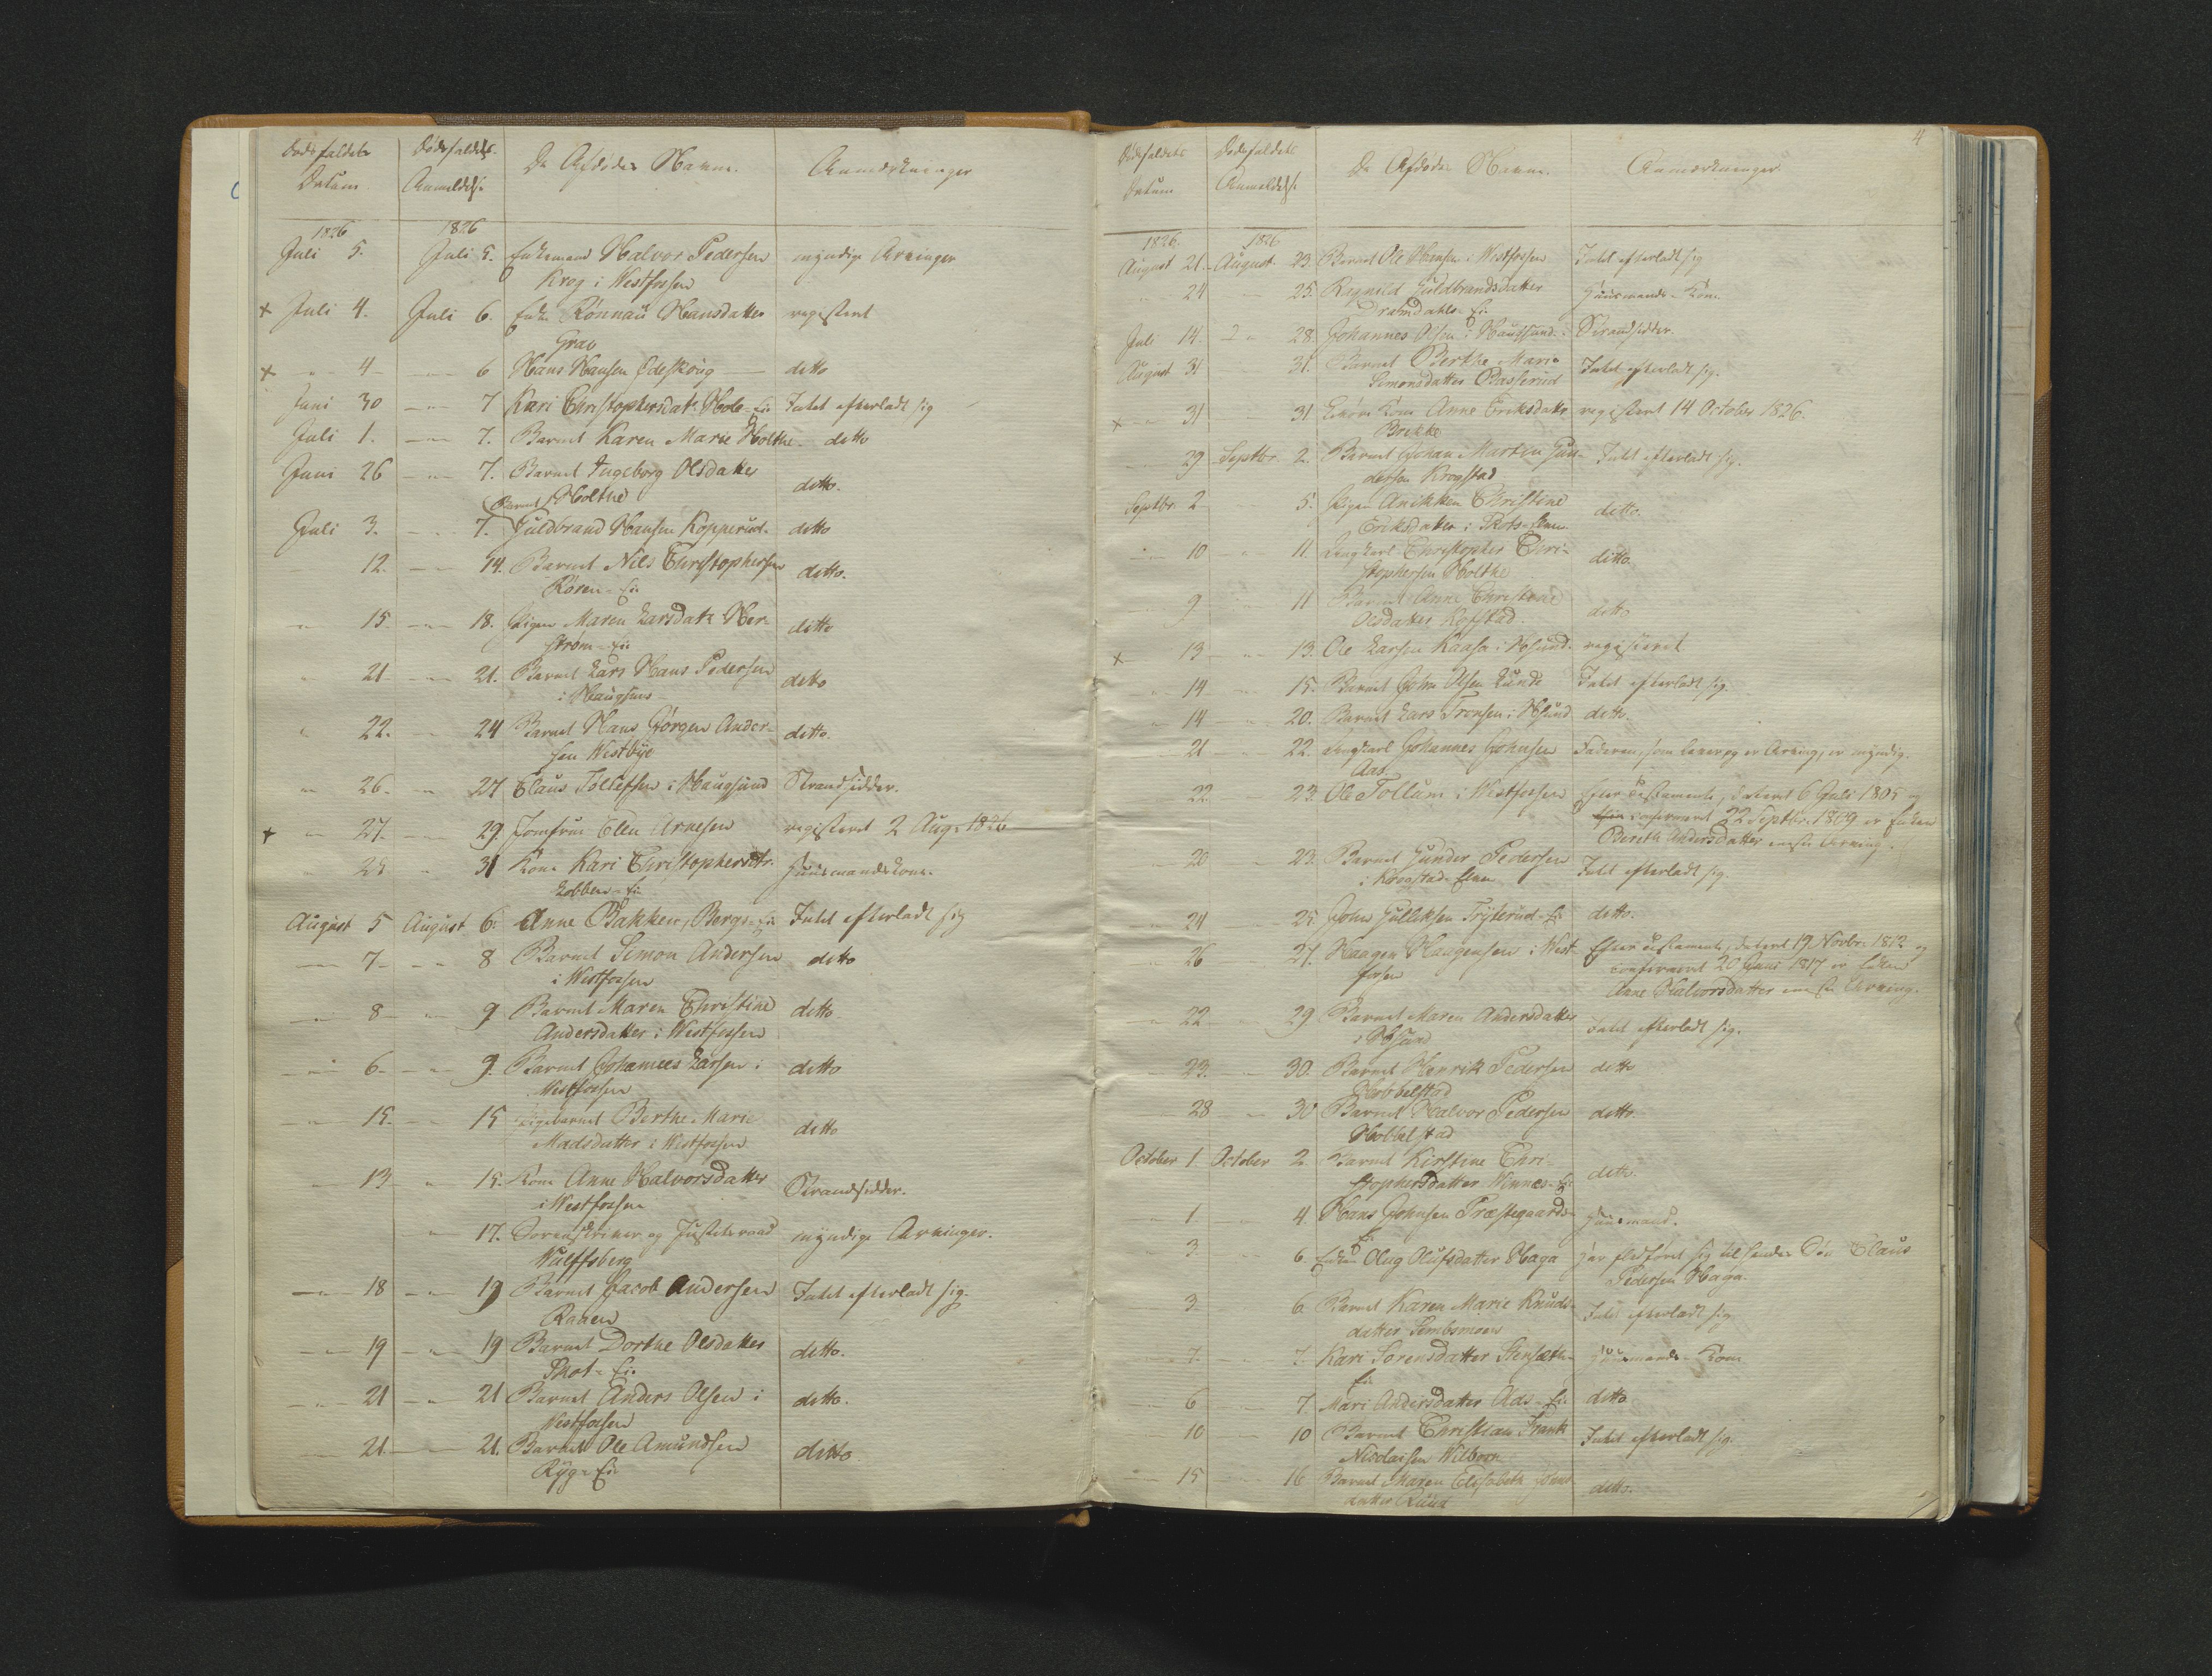 Dødsfaldets Dødsfaldets De Afdødes Navne. Anmærkninger
Datum Anmeldelse
1826 1826
Juli 5. Juli 5. Enkemand Halvor Pedersen myndige Arvinger
Krog i Westfossen
x Juli 4. Juli 6. Enke Rønnau Hansdatter registeret
Grav
x " 4 " 6 Hans Hansen Edeskoug ditto
Juni 30 " 7 Kari Christophersdatr Hole-Eie Intet efterladt sig
Juli 1. " 7. Barnet Karen Marie Holthe ditto
Juni 26 " 7. Barnet Ingeborg Olsdatter ditto.
Holthe
Barnet
Juli 3. " 7. Guldbrand Hansen Kopperud ditto
12. " 14. Barnet Niels Christophersen ditto.
Røren-Eie
" 15 " 18. Pigen Maren Larsdatr Her- ditto
strøm-Eie
" 21 " 21. Barnet Lars Hans Pedersen ditto
i Haugsund
" 22. " 24 Barnet Hans Jørgen Ander- ditto.
sen Westbye
" 26. " 27 Claus Tollefsen i Haugsund Strandsidder.
x " 27. " 29. Jomfrue Elen Arnesen registeret 2 Aug. 1826
" 31 Kone Kari Christophersdtr. Huusmandskone.
Lobben-Eie
August 5 August 6. Anne Bakken, Bergs-Eie Intet efterladt sig
" 7 " 8 Barnet Simon Andersen ditto
i Westfossen
" 8 " 9 Barnet Maren Christine ditto
Andersdatter i Westfossen
" 6 " 9. Barnet Johannes Larsen i ditto
Westfossen
" 15. " 15 Pigebarnet Berthe Marie ditto
Madsdatter i Westfossen
" 13 " 15. Kone Anne Halvorsdatter Strandsidder.
i Westfossen
" 17. Sorenskriver og Justitsraad myndige Arvinger.
Wulffsberg
" 18 " 19 Barnet Jacob Andersen Intet efterladt sig.
Raaen
" 19 " 19 Barnet Dorthe Olsdatter ditto.
Skot-Eie
" 21 " 21 Barnet Anders Olsen i ditto.
Westfossen
" 21 " 21. Barnet Ole Amundsen ditto
Ryg-Eie
4
Dødsfaldets Dødsfaldets De Afdødes Navne. Anmærkninger.
Datum Anmeldelse
1826. 1826
August 21. August 23. Barnet Ole Hansen i Westfossen Intet efterladt sig
" 24 " 25. Ragnild Guldbrandsdatter Huusmands-Kone
Dramdahls-Eie
Juli 14. " 28. Johannes Olsen i Haugsund Strandsidder.
August 31 31. Barnet Berthe Marie Intet efterladt sig.
Simonsdatter Basserud
x " 31 31 Kone Anne Eriksdatter registeret 14 October 1826.
Brekke
" 29 Septbr. 2. Barnet Johan Martin Gun- Intet efterladt sig.
dersen Krogstad
Septbr. 2 5. Pigen Anikken Christine ditto.
Eriksdatter i Skots-
" 10 " 11. Ungkarl Christopher Chri- ditto.
stophersen Holthe
9 11 Barnet Anne Christine ditto
Olsdatter Røfstad.
x 13 " 13. Ole Larsen Kaasa i registeret
" 14 15. Barnet John Olsen Lunde Intet efterladt sig.
" 14 " 20. Barnet Lars Tronsen i ditto.
21 " 22. Ungkarl Johannes Johnsen Faderen, som Arving, er myndig.
Aas
22 23. Ole Tollum i Westfossen Efter Testamente, dateret 6 Juli 1805 og
confirmeret 22 Septbr. 1809 er Enken
Bereth Andersdatter eneste Arving.
20 23. Barnet Gunder Pedersen Intet efterladt sig.
i Krogstad-
24 25. John Gulliksen Tryterud-Eie ditto.
26 27. Haagen Haagensen i West- Efter Testamente, dateret 19 Novbr. 1812 og
fossen confirmeret 20 Juni 1817 er Enken
Anne Halvorsdatter eneste Arving.
" 22 29 Barnet Maren Andersdatter Intet efterladt sig.
i
23. 30. Barnet Henrik Pedersen ditto
Hobbelstad
28 30 Barnet Halvor Pedersen ditto.
Hobbelstad
October 1 October 2 Barnet Kirstine Chri- ditto.
stophersdatter Vinnes-Eie
1 4. Hans Johnsen Præstegaards- Huusmand.
Eie
" 3 6. Enken Olug Olufsdatter Haga har fledført sig til hendes Søn Claus
Pedersen Haga.
3 6 Barnet Karen Marie Knuds- Intet efterladt sig
datter Sembsmoen
7 7. Kari Sørensdatter Stensæth- Huusmands-Kone
Eie
6 7. Mari Andersdatter Aas-Eie ditto
10 10 Barnet Christian Frank Intet efterladt sig.
Nicolaisen
15 16 Barnet Maren Elisabeth ditto.
datter Ruud